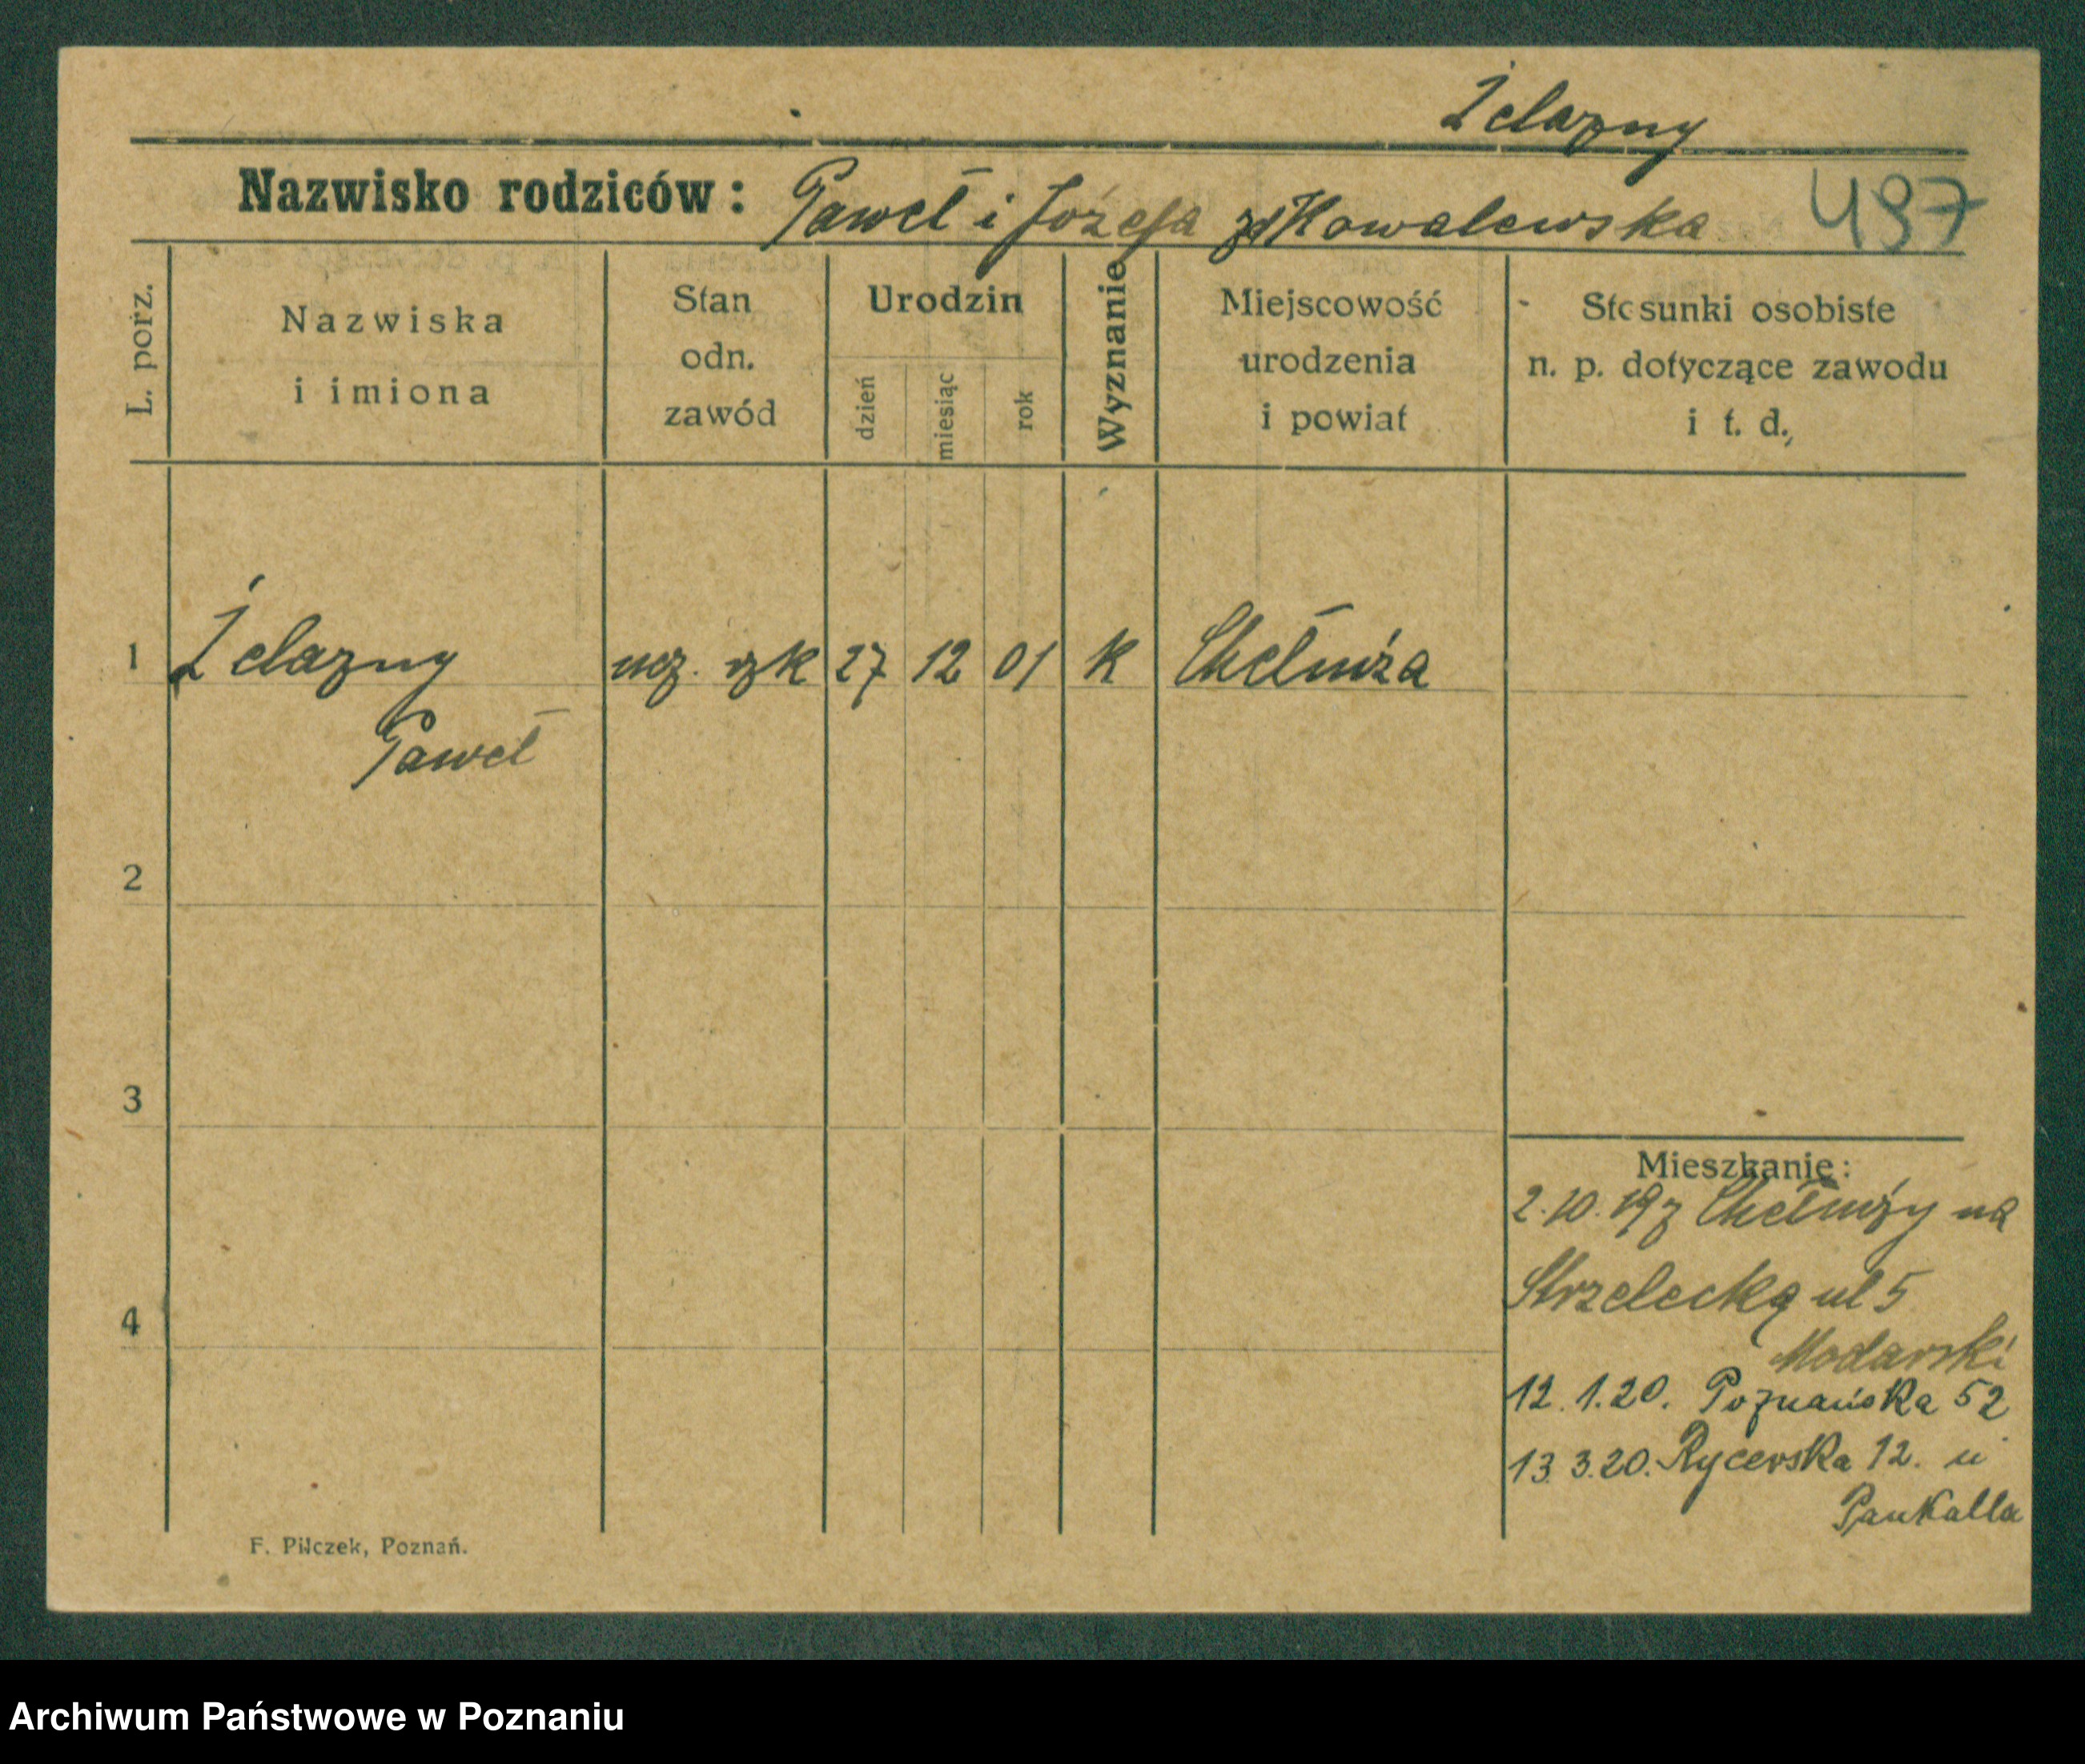 Żelazny
Nazwisko rodziców: Paweł i Józefa zd Kowalewska 497
L. porz.
Nazwiska
i imiona
Stan
odn.
zawód
Urodzin
dzień
miesiąc
rok
Wyznanie
Miejscowość
urodzenia
i powiat
Stosunki osobiste
n. p. dotyczące zawodu
i t. d.,
1 Żelazny ucz. 27 12 01 k Chełmża
Paweł
2
3
4
Mieszkanie:
2.10.19 z Chełmży na
Strzelecką ul 5
Modarski
12.1.20. Poznańska 52
13.3.20. Rycerska 12. u
Pankalla
F. Pilczek, Poznań.
Archiwum Państwowe w Poznaniu